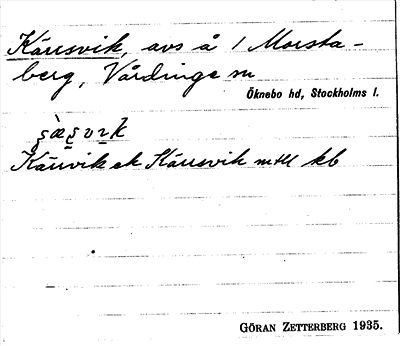 Kärrsvik, avs å 1 Morsta-
berg, Vårdinge sn
Öknebo hd, Stockholms l.
Kärrvik ek Kärrsvik mtl kb
GÖRAN ZETTERBERG 1935.